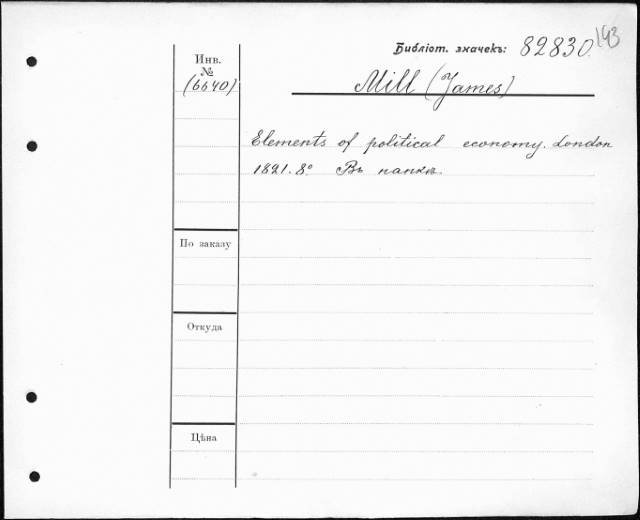 Библіот. значекъ: 82830.
143
Инв.
№
(6640)
Mill (James)
Elements of political economy. London
1821. 8º. Въ папкѣ.
По заказу
Откуда
Цѣна